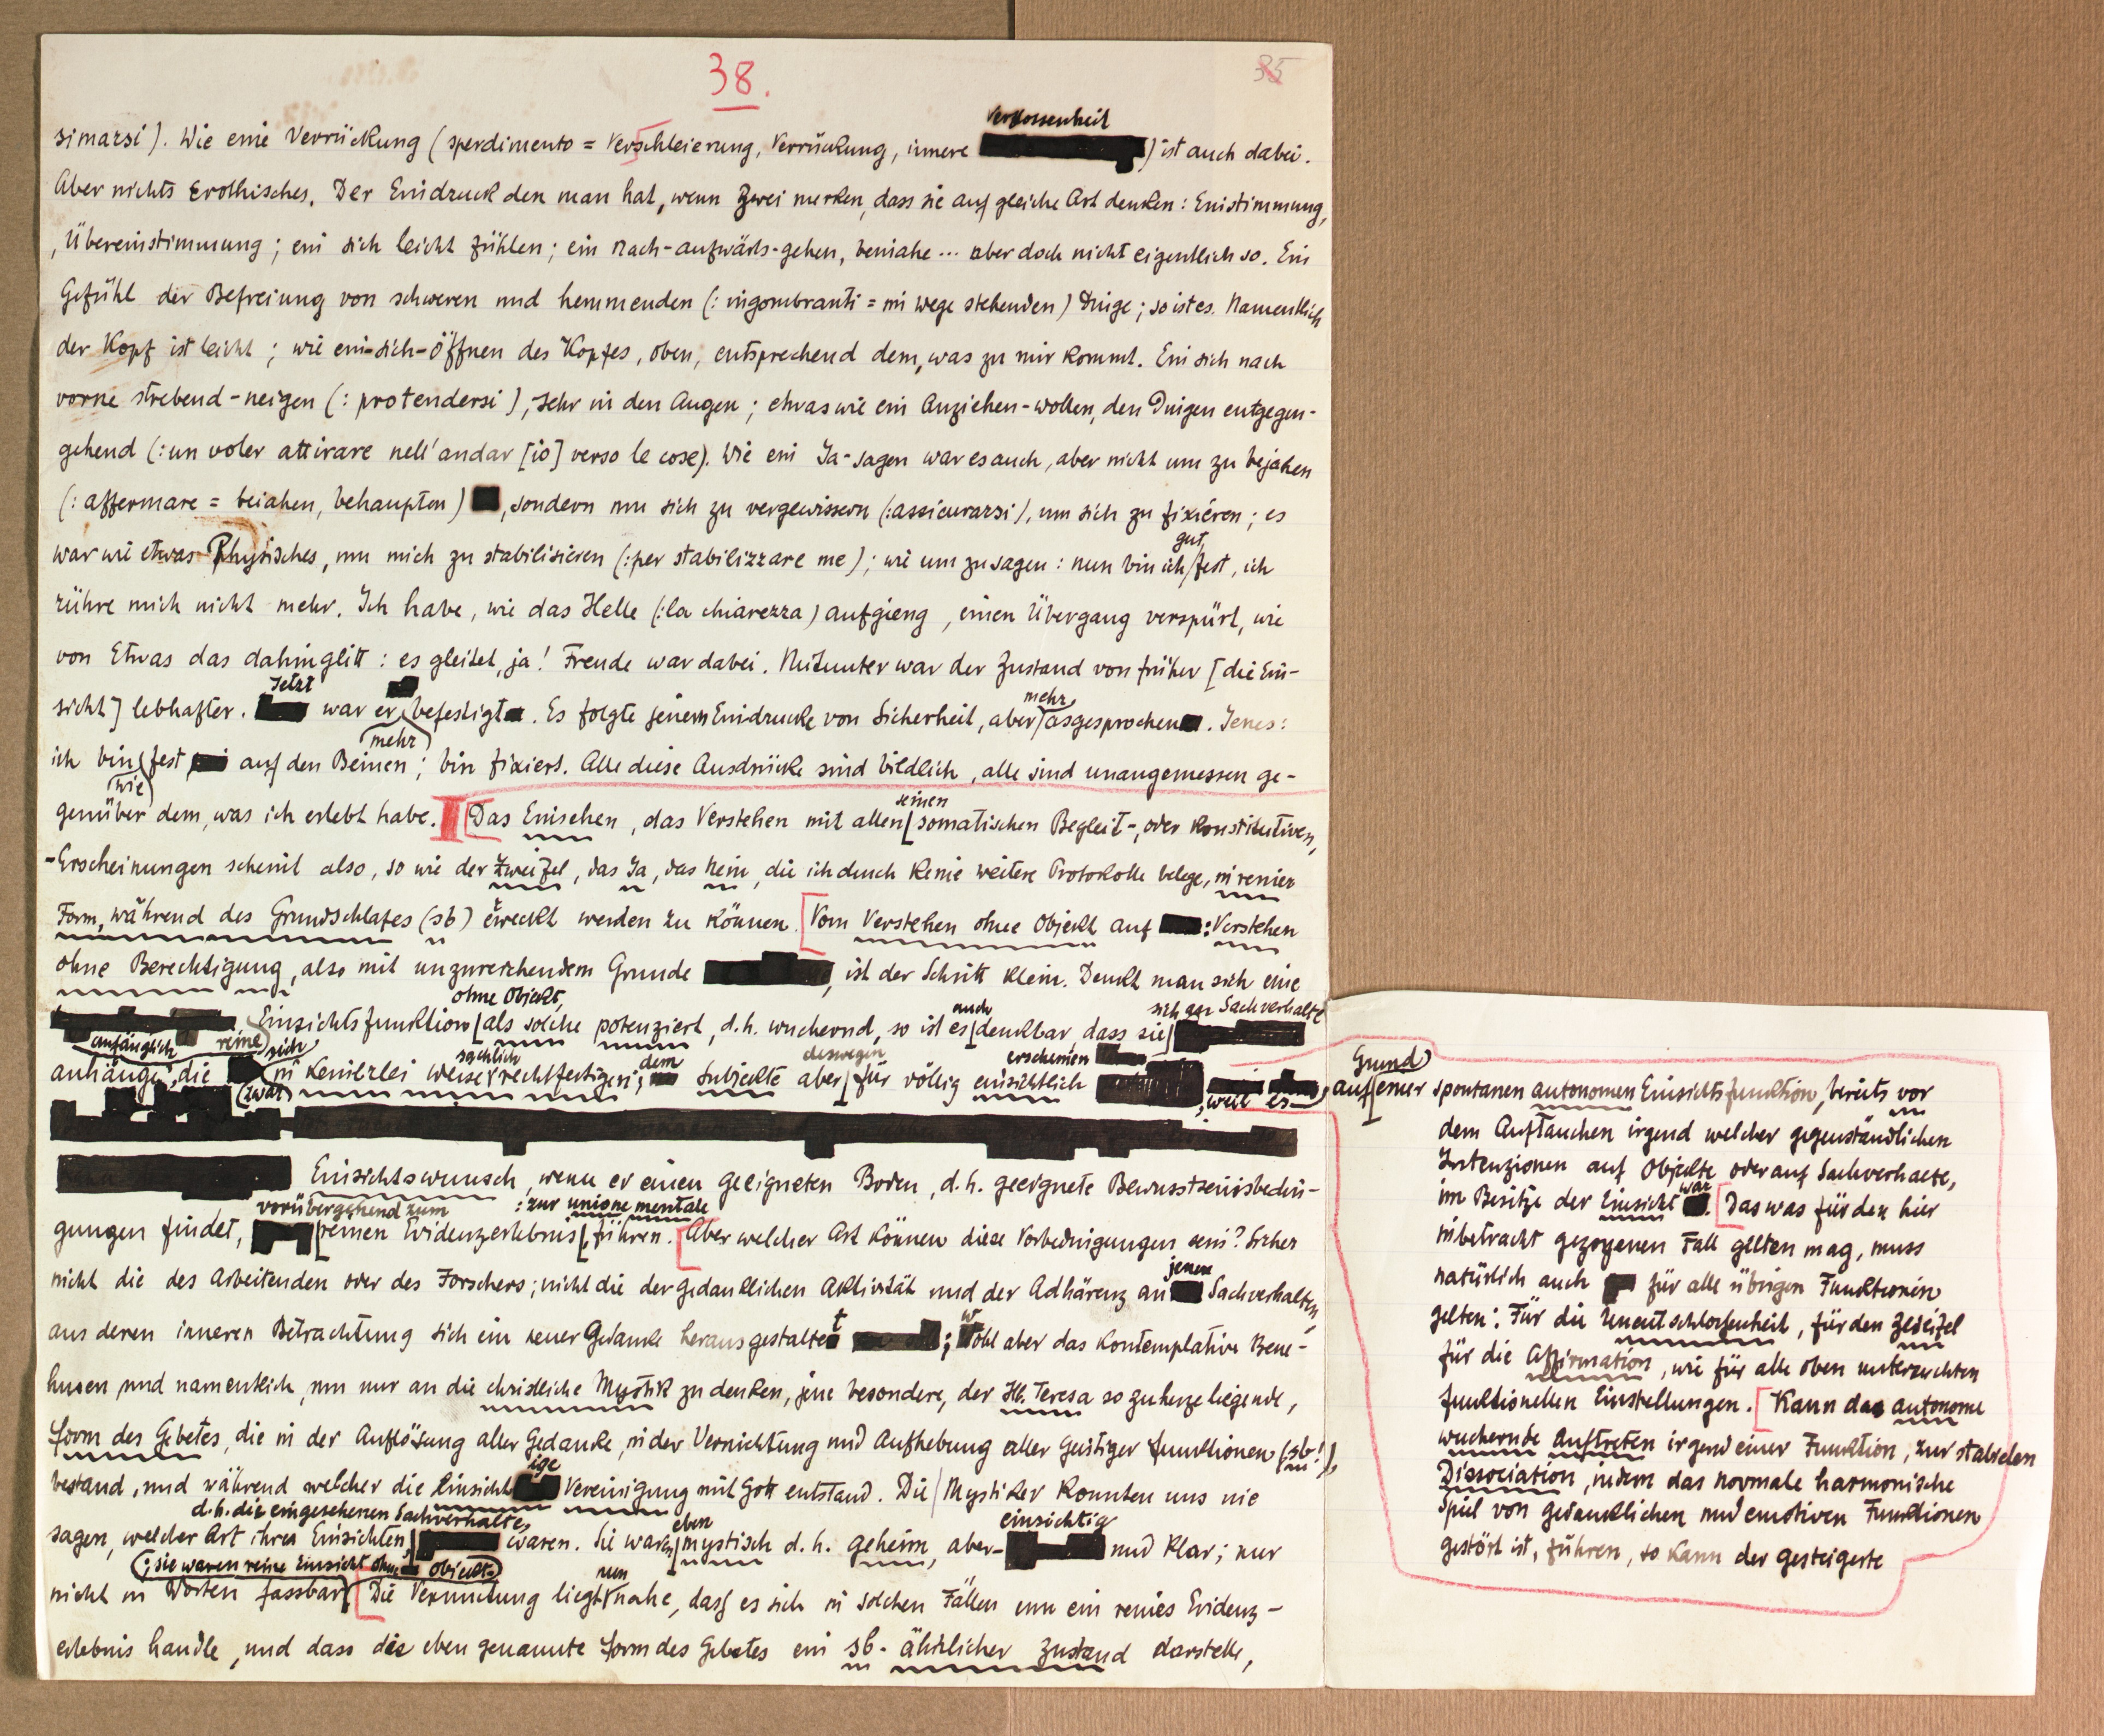 38.
35
Verlorenheit
simarsi). Wie eine Verrückung (sperdimento = Verschleierung, Verrückung, innere ) ist auch dabei.
Aber nichts Erothisches. Der Eindruck den man hat, wenn zwei merken, dass sie auf gleiche Art denken: Einstimmung,
, Übereinstimmung; ein sich leicht fühlen; ein nach-aufwärts-gehen, beinahe ... aber doch nicht eigentlich so. Ein
Gefühl der Befreiung von schweren und hemmenden (: ingombranti = im wege stehenden) Dinge; so ist es. Namentlich
der Kopf ist leicht; wie ein-sich-öffnen des Kopfes, oben, entsprechend dem, was zu mir kommt. Ein sich nach
vorne strebend-neigen (: protendersi), sehr in den Augen; etwas wie ein Anziehen-wollen, den Dingen entgegen-
gehend (: un voler attirare nell'andar [io] verso le cose). Wie ein Ja-sagen war es auch, aber nicht um zu bejahen
(: affermare = beiahen, behaupten) , sondern um sich zu vergewissern (: assicurarsi), um sich zu fixiéren; es
gut
war wie etwas Physisches, um mich zu stabilisieren (: per stabilizzare me); wie um zu sagen: nun bin ich fest, ich
rühre mich nicht mehr. Ich habe, wie das Helle (: la chiarezza) aufgieng, einen Übergang verspürt, wie
von Etwas das dahinglitt: es gleitet, ja! Freude war dabei. Mitunter war der Zustand von früher [die Ein-
Jetzt mehr
sicht] lebhafter. war er befestigt . Es folgte jenem Eindrucke von Sicherheit, aber asgesprochen . Jenes:
mehr
ich bin fest auf den Beinen; bin fixiert. Alle diese Ausdrücke sind bildlich, alle sind unangemessen ge-
wie seinen
genüber dem, was ich erlebt habe. [Das Einsehen, das Verstehen mit allen somatischen Begleit-, oder konstitutiven,
-Erscheinungen scheint also, so wie der Zweifel, das Ja, das Nein, die ich durch keine weitere Protokolle belege, in reiner
Form, während des Grundschlafes (sb) erweckt werden zu können. [Vom Verstehen ohne Objekt auf : Verstehen
ohne Berechtigung, also mit unzureichendem Grunde , ist der Schritt klein. Denkt man sich eine
ohne Objekt, auch sich an Sachverhalte
Einsichtsfunktion als solche potenziert, d.h. wuchernd, so ist es denkbar, dass sie
anfänglich reine sich sachlich dem deswegen erscheinen
anhänge, die in keinerlei weise rechtfertigen; Subjekte aber für völlig einsichtlich , weil es
(zwar)
Einsichtswunsch, wenn er einen geeigneten Boden, d.h. geeignete Bewusstseinsbedin-
vorübergehend zum : zur unione mentale
gungen findet, reinen Evidenzerlebnis führen. [Aber welcher Art können diese Vorbedingungen sein? Sicher
jenen
nicht die des Arbeitenden oder des Forschers; nicht die der gedanklichen Aktivität und der Adhärenz an Sachverhalten,
aus deren inneren Betrachtung sich ein neuer Gedanke herausgestaltet ; Wohl aber das kontemplative Bene-
hmen und namentlich, um nur an die christliche Mystik zu denken, jene besondere, der Hl. Teresa so zu herze liegende,
Form des Gebetes, die in der Auflösung aller Gedanke, in der Vernichtung und Aufhebung aller geistiger Funktionen (sb!),
ige
bestand, und während welcher die Einsicht Vereinigung mit Gott entstand. Die Mystiker konnten uns nie
d.h. die eingesehenen Sachverhalte, eben einsichtig
sagen, welcher Art ihren Einsichten, waren. Sie waren mystisch d.h. geheim, aber- und klar; nur
(; sie waren reine Einsicht ohne Objekt.) nun
nicht in Worten fassbar [Die Vermutung liegt nahe, dass es sich in solchen Fällen um ein reines Evidenz-
erlebnis handle, und dass die eben genannte Form des Gebetes ein sb-ähnlicher Zustand darstelle,
Grund
auf einer spontanen autonomen Einsichtsfunktion, bereits vor
dem Auftauchen irgend welcher gegenständlichen
Intenzionen auf Objekte oder auf Sachverhalte,
im Besitze der Einsicht war. [Das was für den hier
inbetracht gezogenen Fall gelten mag, muss
natürlich auch für alle übrigen Funktionen
gelten: Für die Unentschlossenheit, für den Zweifel
für die Affirmation, wie für alle oben untersuchten
funktionellen Einstellungen. [Kann das autonome
wuchernde Auftreten irgend einer Funktion, zur stabilen
Dissociation, indem das normale harmonische
Spiel von gedanklichen und emotiven Funktionen
gestört ist, führen, so kann der gesteigerte